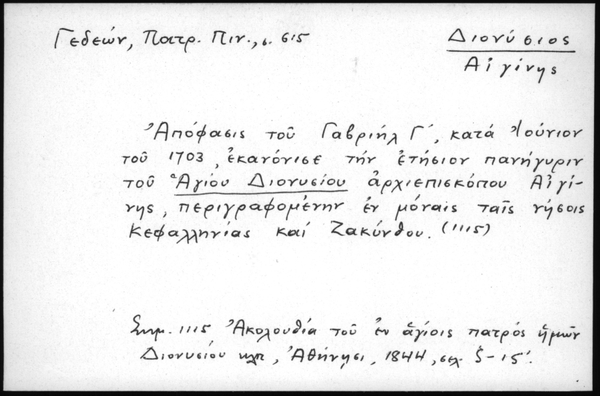 Γεδεών, Πατρ. Πιν., σ. 615
Διονύσιος
Αἰγίνης
Ἀπόφασις τοῦ Γαβριήλ Γ΄, κατά Ἰούνιον
τοῦ 1703, ἐκανόνισε τήν ἐτήσιον πανήγυριν
τοῦ Ἁγίου Διονυσίου ἀρχιεπισκόπου Αἰγί-
νης, περιγραφομένην ἐν μόναις ταῖς νήσοις
Κεφαλληνίας καί Ζακύνθου. (1115)
Σημ. 1115 Ἀκολουθία τοῦ ἐν ἁγίοις πατρός ἡμῶν
Διονυσίου κλπ, Ἀθήνησι, 1844, σελ.